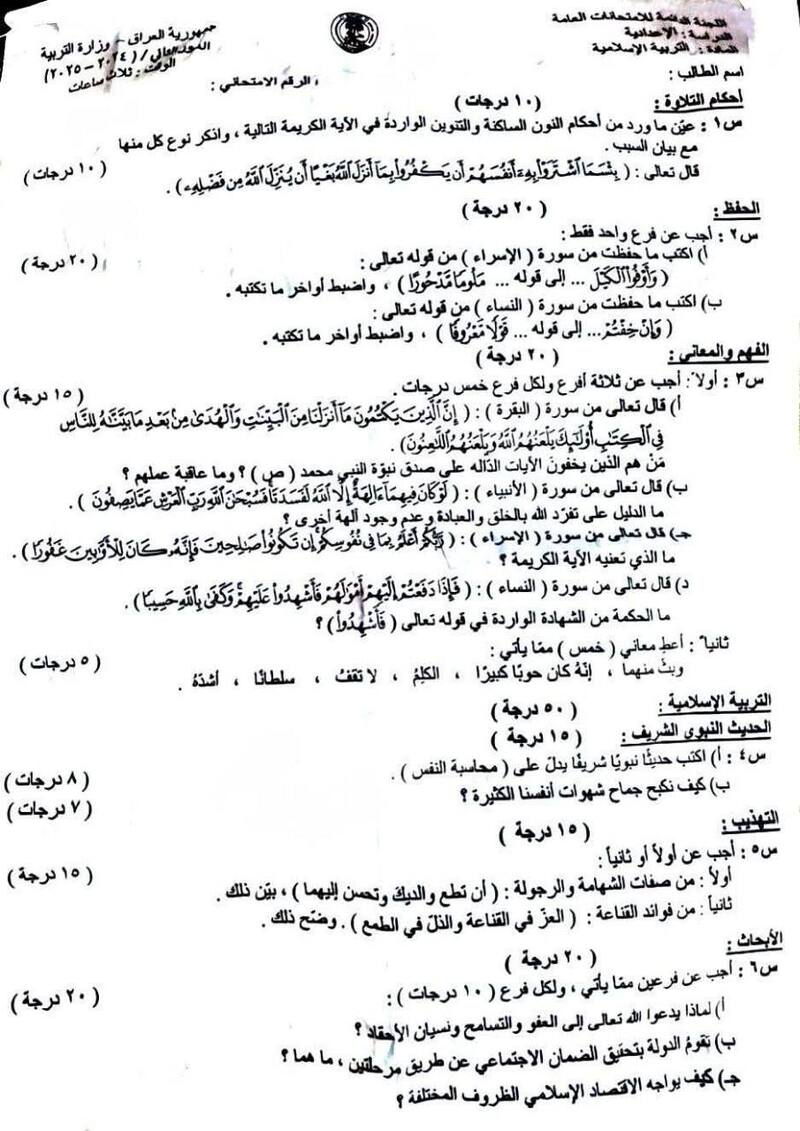 اللجنة الدائمة للامتحانات العامة
الدراسة : الإعدادية
المادة : التربية الإسلامية
جمهورية العراق - وزارة التربية
/ ( ٢٠٢٤ - ٢٠٢٥ )
الوقت : ثلاث ساعات
اسم الطالب :
الرقم الامتحاني :
أحكام التلاوة : ( ١٠ درجات )
س١ : عيّن ما ورد من أحكام النون الساكنة والتنوين الواردة في الآية الكريمة التالية ، واذكر نوع كل منها
مع بيان السبب . ( ١٠ درجات )
قال تعالى : ( بِئْسَمَا اشْتَرَوْا بِهِ أَنفُسَهُمْ أَن يَكْفُرُوا بِمَا أَنزَلَ اللَّهُ بَغْيًا أَن يُنَزِّلَ اللَّهُ مِن فَضْلِهِ ) .
الحفظ : ( ٢٠ درجة )
س٢ : أجب عن فرع واحد فقط : ( ٢٠ درجة )
أ) اكتب ما حفظت من سورة ( الإسراء ) من قوله تعالى :
( وَأَوْفُوا الْكَيْلَ ... إلى قوله ... مَلُومًا مَّدْحُورًا ) ، واضبط أواخر ما تكتبه .
ب) اكتب ما حفظت من سورة ( النساء ) من قوله تعالى :
( وَإِنْ خِفْتُمْ ... إلى قوله ... قَوْلًا مَّعْرُوفًا ) ، واضبط أواخر ما تكتبه .
الفهم والمعاني : ( ٢٠ درجة )
س٣ : أولاً : أجب عن ثلاثة أفرع ولكل فرع خمس درجات . ( ١٥ درجة )
أ) قال تعالى من سورة ( البقرة ) : ( إِنَّ الَّذِينَ يَكْتُمُونَ مَا أَنزَلْنَا مِنَ الْبَيِّنَاتِ وَالْهُدَىٰ مِن بَعْدِ مَا بَيَّنَّاهُ لِلنَّاسِ
فِي الْكِتَابِ أُولَٰئِكَ يَلْعَنُهُمُ اللَّهُ وَيَلْعَنُهُمُ اللَّاعِنُونَ ) .
مَنْ هم الذين يخفونَ الآيات الدّاله على صدق نبوّة النبي محمد ( ص ) ؟ وما عاقبة عملهم ؟
ب) قال تعالى من سورة ( الأنبياء ) : ( لَوْ كَانَ فِيهِمَا آلِهَةٌ إِلَّا اللَّهُ لَفَسَدَتَا فَسُبْحَانَ اللَّهِ رَبِّ الْعَرْشِ عَمَّا يَصِفُونَ ) .
ما الدليل على تفرّد الله بالخلق والعبادة وعدم وجود آلهة أخرى ؟
جـ) قال تعالى من سورة ( الإسراء ) : ( رَّبُّكُمْ أَعْلَمُ بِمَا فِي نُفُوسِكُمْ إِن تَكُونُوا صَالِحِينَ فَإِنَّهُ كَانَ لِلْأَوَّابِينَ غَفُورًا ) .
ما الذي تعنيه الآية الكريمة ؟
د) قال تعالى من سورة ( النساء ) : ( فَإِذَا دَفَعْتُمْ إِلَيْهِمْ أَمْوَالَهُمْ فَأَشْهِدُوا عَلَيْهِمْ وَكَفَىٰ بِاللَّهِ حَسِيبًا ) .
ما الحكمة من الشهادة الواردة في قوله تعالى ( فَأَشْهِدُوا ) ؟
ثانياً : أعطِ معاني ( خمس ) ممّا يأتي : ( ٥ درجات )
وبثّ منهما ، إنّهُ كان حوبًا كبيرًا ، الكلِمُ ، لا تقفُ ، سلطانًا ، أشدّهُ .
التربية الإسلامية : ( ٥٠ درجة )
الحديث النبوي الشريف : ( ١٥ درجة )
س٤ : أ) اكتب حديثًا نبويًا شريفًا يدلّ على ( محاسبة النفس ) . ( ٨ درجات )
ب) كيف نكبح جماح شهوات أنفسنا الكثيرة ؟ ( ٧ درجات )
التهذيب : ( ١٥ درجة )
س٥ : أجب عن أولاً أو ثانياً : ( ١٥ درجة )
أولاً : من صفات الشهامة والرجولة : ( أن تطع والديك وتحسن إليهما ) ، بيّن ذلك .
ثانياً : من فوائد القناعة : ( العزّ في القناعة والذلّ في الطمع ) . وضّح ذلك .
الأبحاث : ( ٢٠ درجة )
س٦ : أجب عن فرعين ممّا يأتي ، ولكل فرع ( ١٠ درجات ) : ( ٢٠ درجة )
أ) لماذا يدعوا الله تعالى إلى العفو والتسامح ونسيان الأحقاد ؟
ب) تقومُ الدولة بتحقيق الضمان الاجتماعي عن طريق مرحلتين ، ما هما ؟
جـ) كيف يواجه الاقتصاد الإسلامي الظروف المختلفة ؟